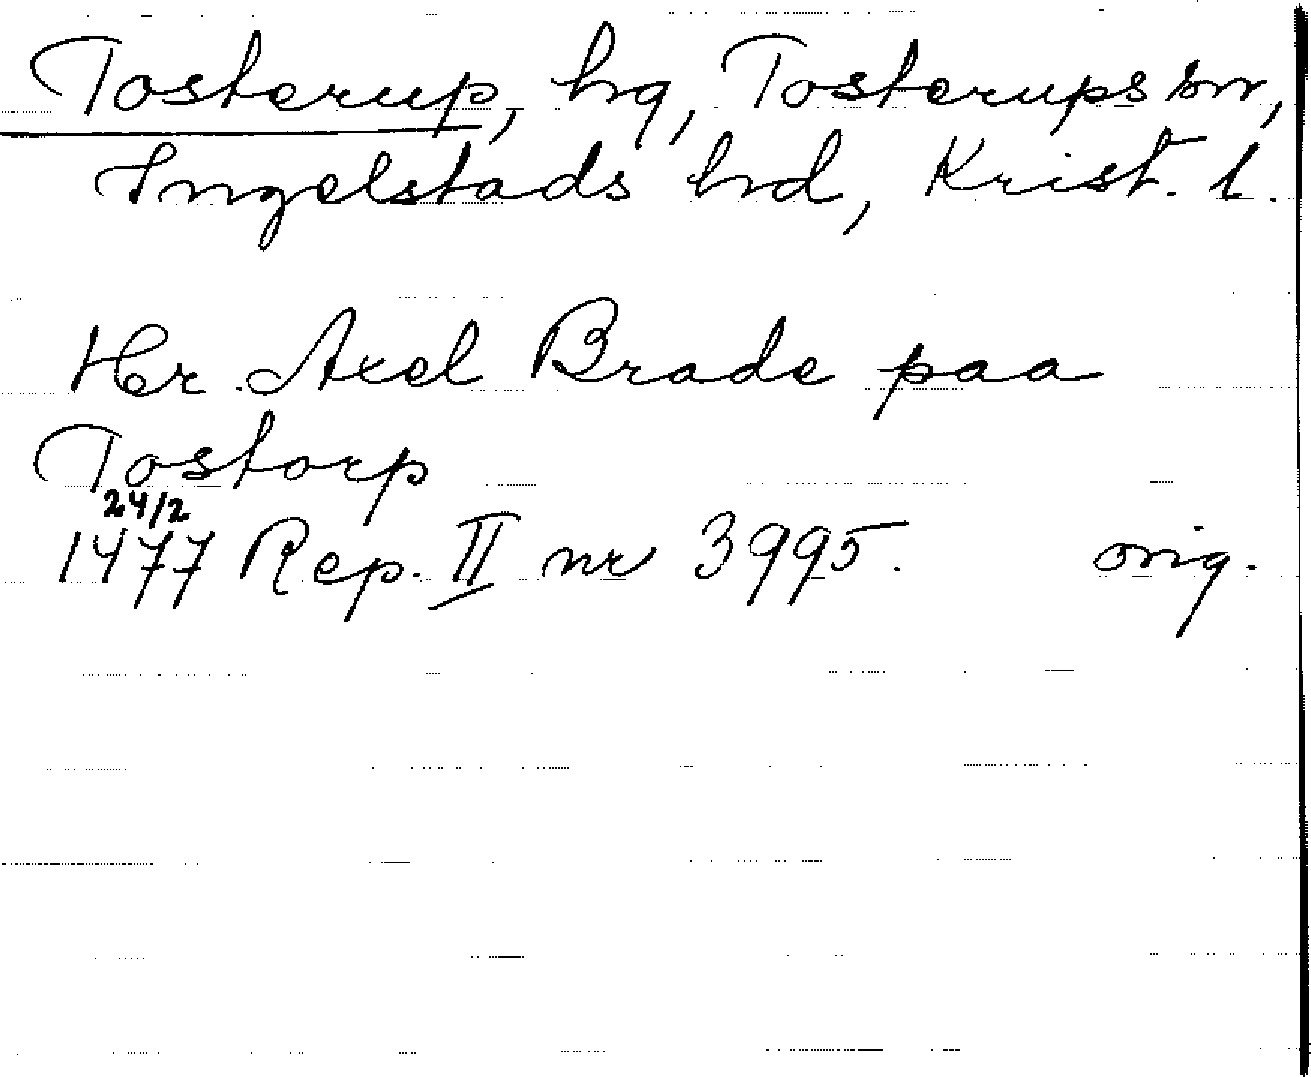 Tosterup, hg, Tosterups sn,
Ingelstads hd, Krist. l.
Hr Axel Brade paa
Tostorp
24/2
1477 Rep. II nr 3995. orig.